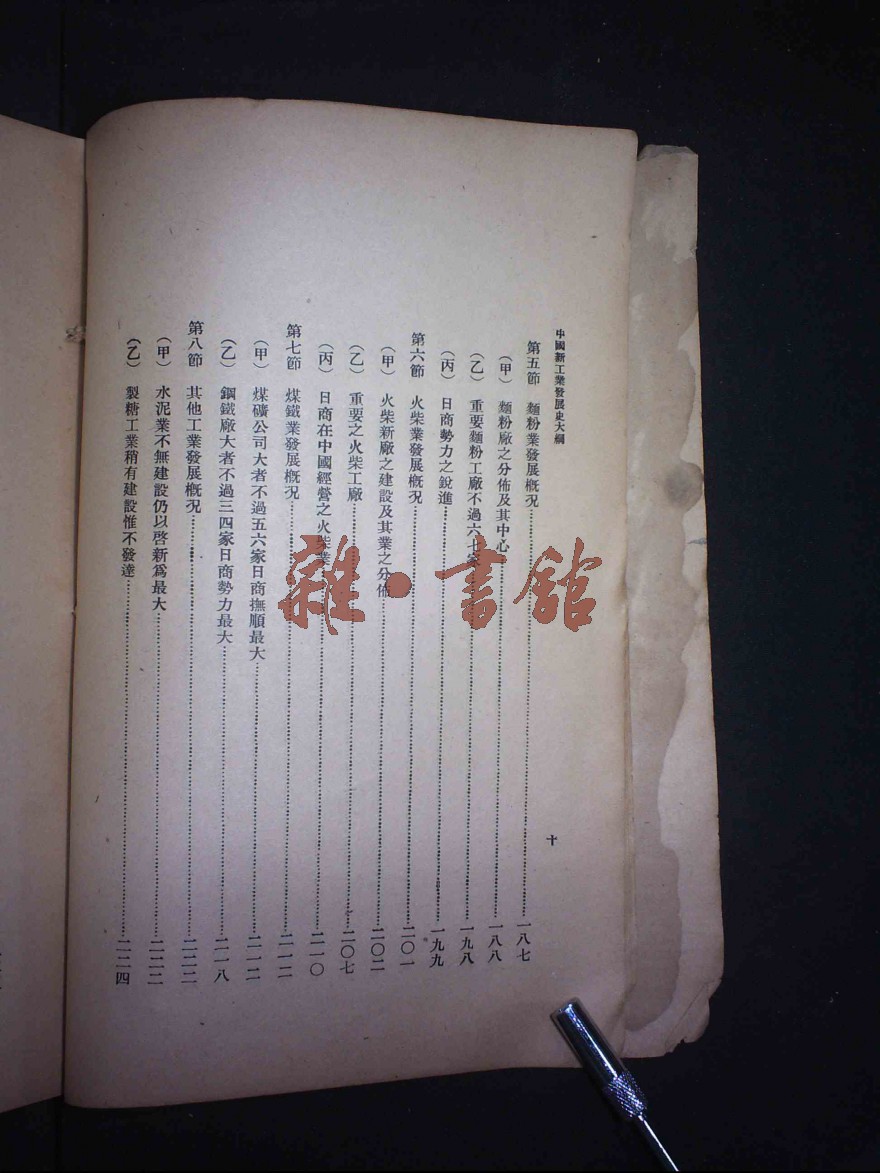 中國新工業發展史大綱
十
第五節 麵粉業發展概況……一八七
(甲) 麵粉廠之分佈及其中心……一八八
(乙) 重要麵粉工廠不過六七家……一九八
(丙) 日商勢力之銳進……一九九
第六節 火柴業發展概況……二〇一
(甲) 火柴新廠之建設及其業之分佈……二〇二
(乙) 重要之火柴工廠……二〇七
(丙) 日商在中國經營之火柴業……二一〇
第七節 煤鐵業發展概況……二一二
(甲) 煤礦公司大者不過五六家日商撫順最大……二一二
(乙) 鋼鐵廠大者不過三四家日商勢力最大……二一八
第八節 其他工業發展概況……二二二
(甲) 水泥業不無建設仍以啓新爲最大……二二二
(乙) 製糖工業稍有建設惟不發達……二二四
雜·書館